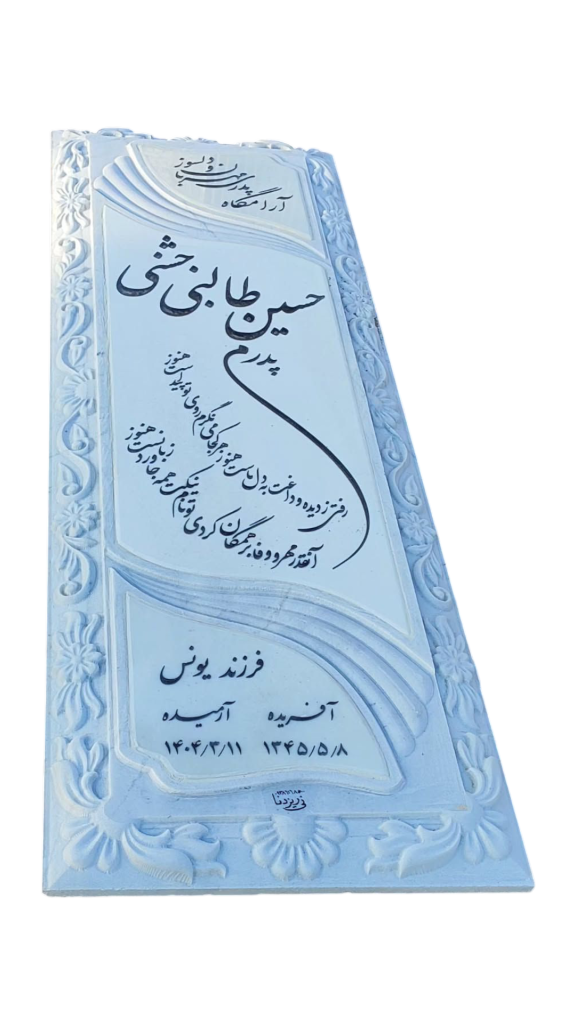 آرامگاه
پدری مهربان و دلسوز
حسین طالبی خشنی
پدرم
رفتی ز دیده و داغت به دل ماست هنوز
هر کجا می نگرم روی تو پیداست هنوز
آنقدر مهر و وفا بر همگان کردی تو
نام نیکت همه جا ورد زبانست هنوز
فرزند یونس
آفریده آرمیده
۱۳۴۵/۵/۸ ۱۴۰۴/۳/۱۱